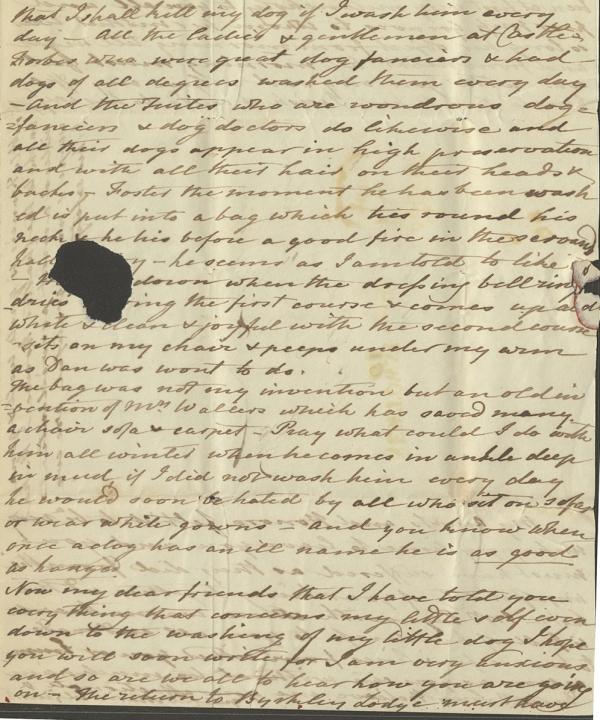 that I shall kill my dog if I wash him every
day – All the ladies & gentlemen at Castle
Forbes were great dog fanciers & had
dogs of all degrees washed them every day
– And the Tuites who are wondrous dog=
=fanciers & dog doctors do likewise and
all their dogs appear in high preservation
and with all their hair on their heads &
backs – Foster the moment he has been wash
ed is put into a bag which ties round his
neck & he lies before a good fire in the servants
hall – he seems as I am told to like
– down when the dressing bell rings
dries the first course & comes up
white & clean & joyful with the second course
– sits on my chair & peeps under my arm
as Dan was wont to do.
The bag was not my invention but an old in
=vention of Mrs Wallers which has saved many
a chair sofa & carpet – Pray what could I do with
him all winter when he comes in ankle deep
in mud if I did not wash him every day
he would soon be hated by all who sit on sofas
or wear white gowns – and you know when
once a dog has an ill name he is as good
as hanged
Now my dear friends that I have told you
everything that concerns my little self even
down to the washing of my little dog I hope
you will soon write for I am very anxious
and so are we all to hear how you are going
on – The return to Byrkley lodge must have